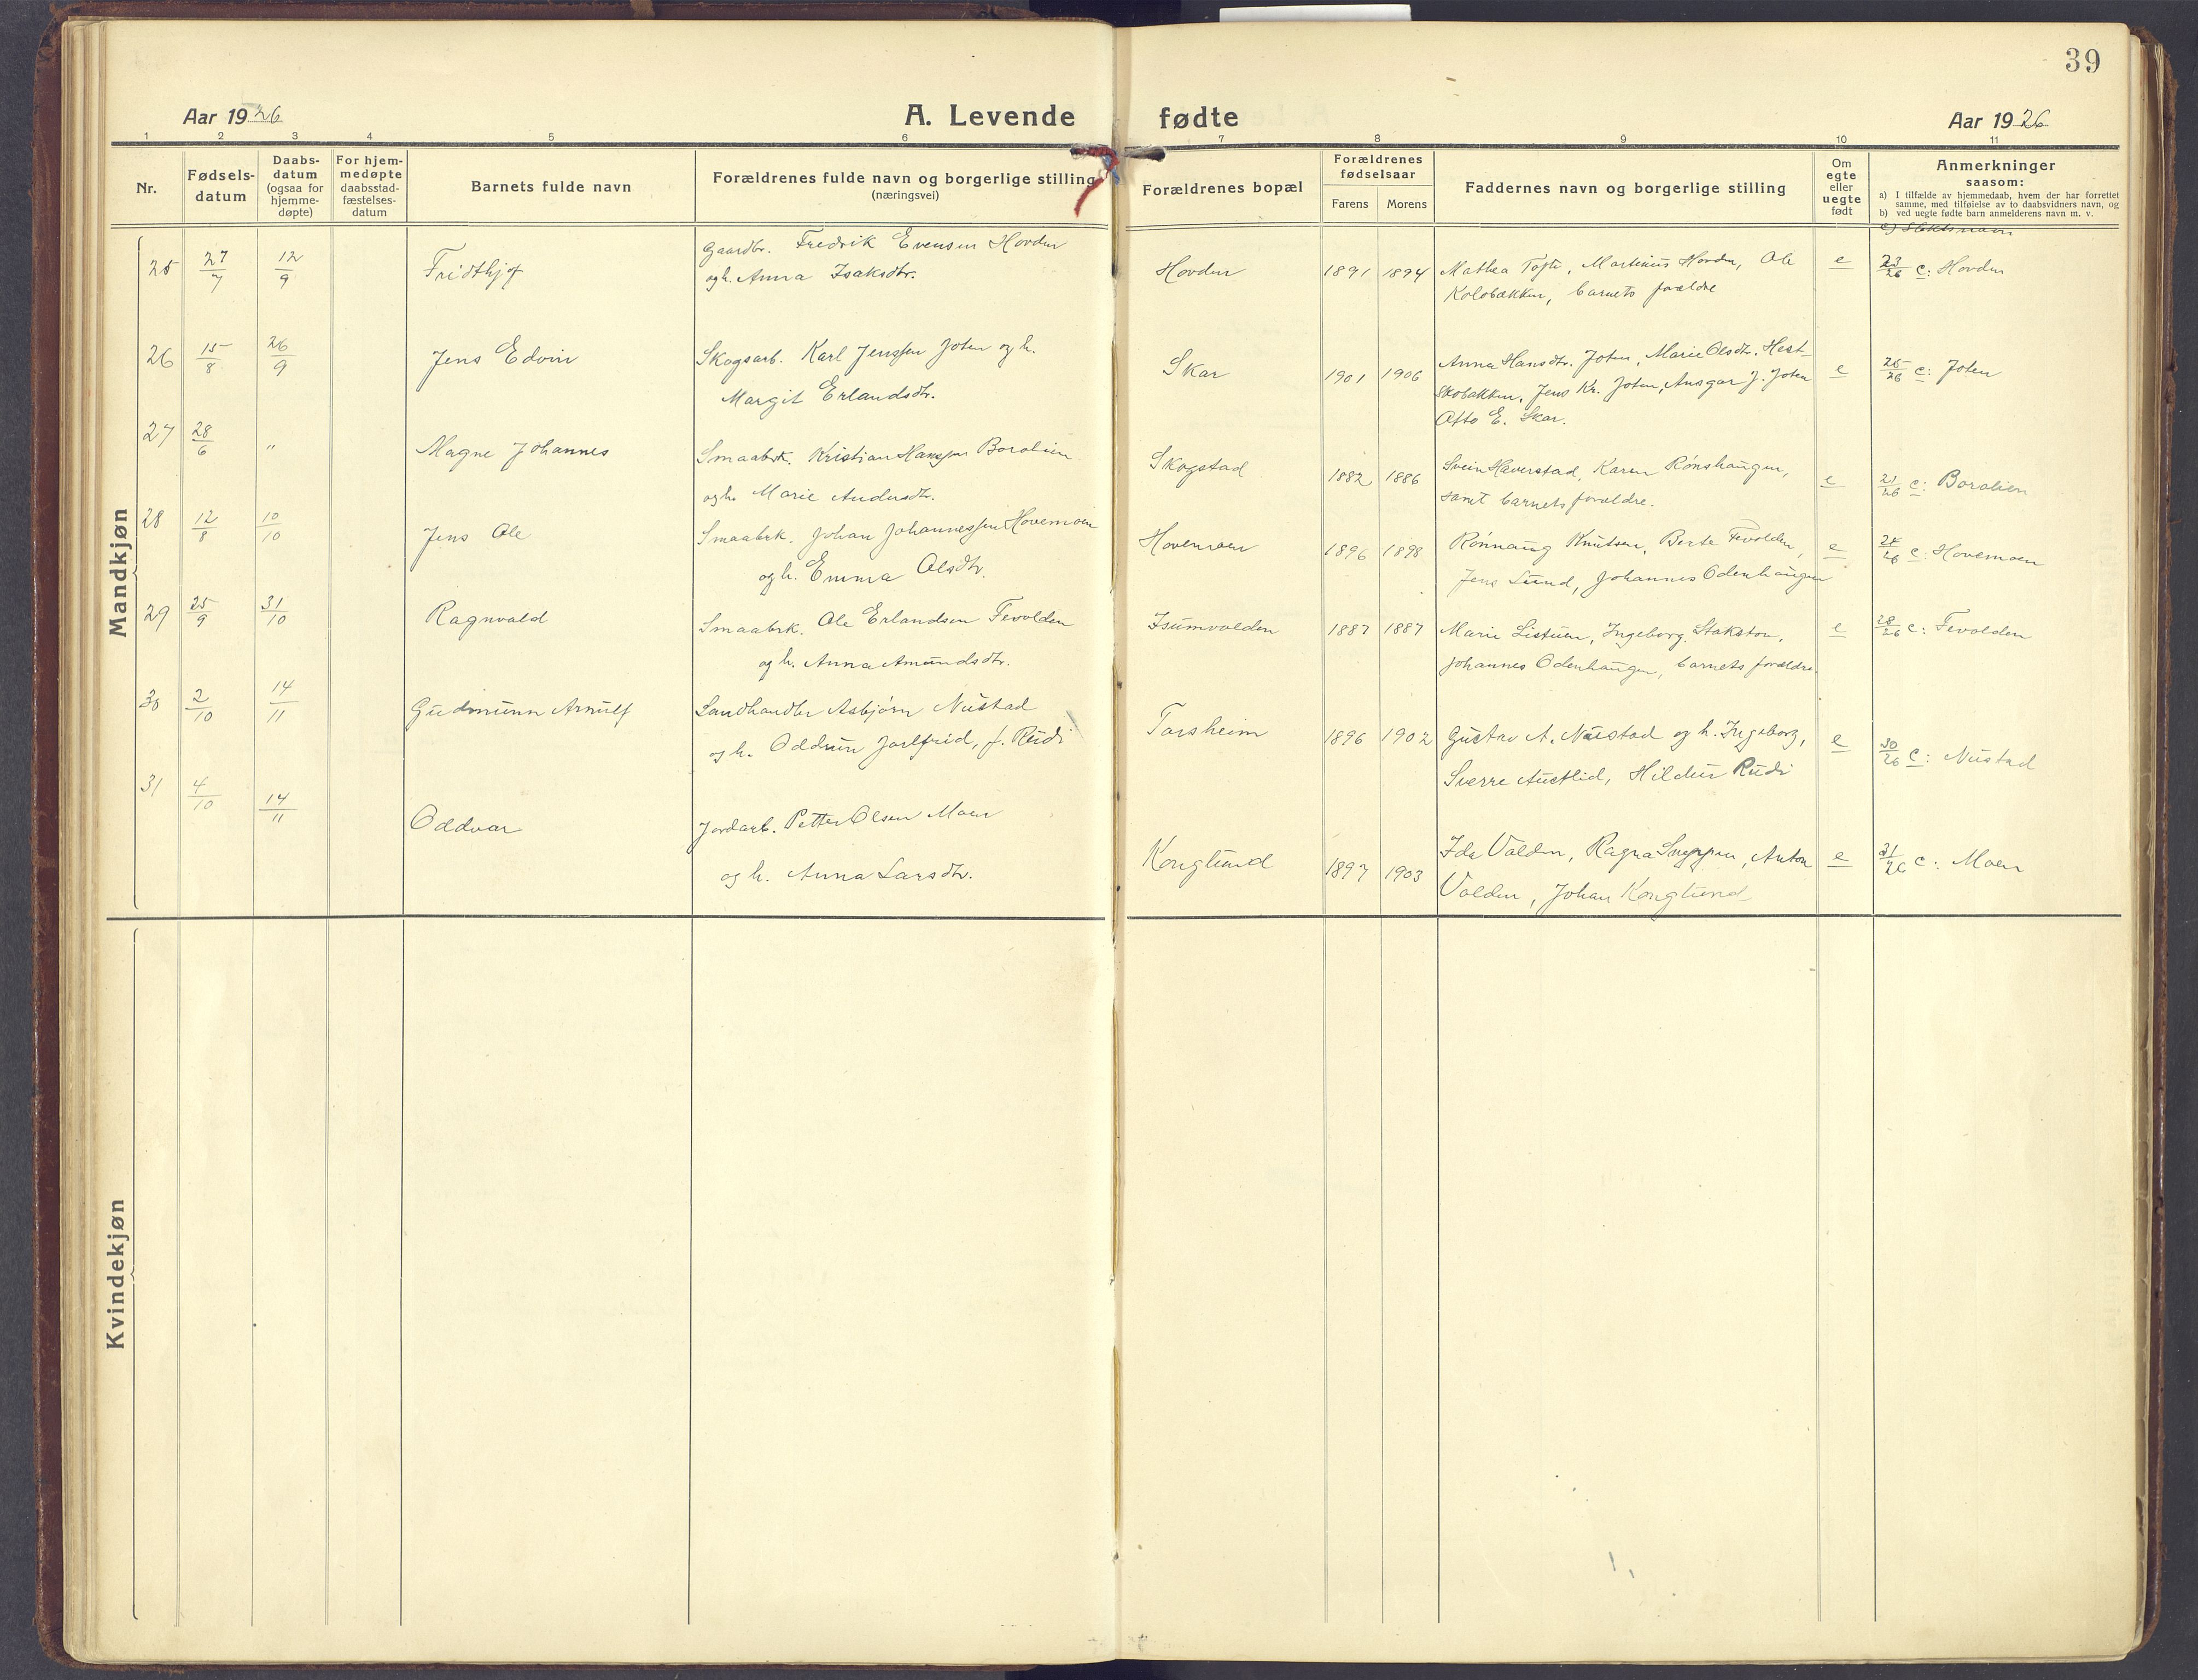 39
Aar 1926
A. Levende fødte
Aar 1926
1 2 3 4 5 6 7 8 9 10 11
Nr.
Fødsels-
datum
Daabs-
datum
(ogsaa for
hjemme-
døpte)
For hjem-
medøpte
daabsstad-
fæstelses-
datum
Barnets fulde navn
Forældrenes fulde navn og borgerlige stilling
(næringsvei)
Forældrenes bopæl
Forældrenes
fødselsaar
Farens Morens
Faddernes navn og borgerlige stilling
Om
egte
eller
uegte
født
Anmerkninger
saasom:
a) I tilfælde av hjemmedaab, hvem der har forrettet
samme, med tilføielse av to daabsvidners navn, og
b) ved uegte fødte barn anmelderens navn m. v.
c) Slektsnavn
Mandkjøn
25 27/7 12/9 Fridthjof
Gaardbr. Fredrik Evensen Hovden
og h. Anna Isaksdtr.
Hovden 1891 1894
Mathea Tofte, Martinius Hovden, Ole
Kolobakken, barnets forældre
e 23/26 c: Hovden
26 15/8 26/9 Jens Edvin
Skogsarb. Karl Jenssen Joten og h.
Margit Erlandsdtr.
Skar 1901 1906
Anna Hansdtr. Joten, Marie Olsdtr. Hest-
skobakken, Jens Kr. Joten, Ansgar J. Joten
Otto E. Skar.
e 25/26 c: Joten
27 28/6 " Magne Johannes
Smaabrk. Kristian Hanssen Borolien
og h. Marie Andersdtr.
Skogstad 1882 1886
Svein Haverstad, Karen Rønshaugen,
samt barnets forældre.
e 21/26 c: Borolien
28 12/8 10/10 Jens Ole
Smaabrk. Johan Johannessen Hovemoen
og h. Emma Olsdtr.
Hovemoen 1896 1898
Rønnaug Knutsen, Berte Fevolden,
Jens Lund, Johannes Odenhaugen
e 24/26 c: Hovemoen
29 25/9 31/10 Ragnvald
Smaabrk. Ole Erlandsen Fevolden
og h. Anna Amundsdtr.
Isumvolden 1887 1887
Marie Listuen, Ingeborg Stakston,
Johannes Odenhaugen, barnets forældre.
e 28/26 c: Fevolden
30 2/10 14/11 Gudmunn Arnulf
Landhandler Asbjørn Nustad
og h. Oddrun Jarlfrid, f. Rudi
Torsheim 1896 1902
Gustav A. Nustad og h. Ingeborg,
Sverre Austlid, Hildur Rudi
e 30/26 c: Nustad
31 4/10 14/11 Oddvar
Jordarb. Petter Olsen Moen
og h. Anna Larsdtr.
Konglund 1897 1903
Ida Volden, Ragna Sveppen, Anton
Volden, Johan Konglund
e 31/26 c: Moen
Kvindekjøn